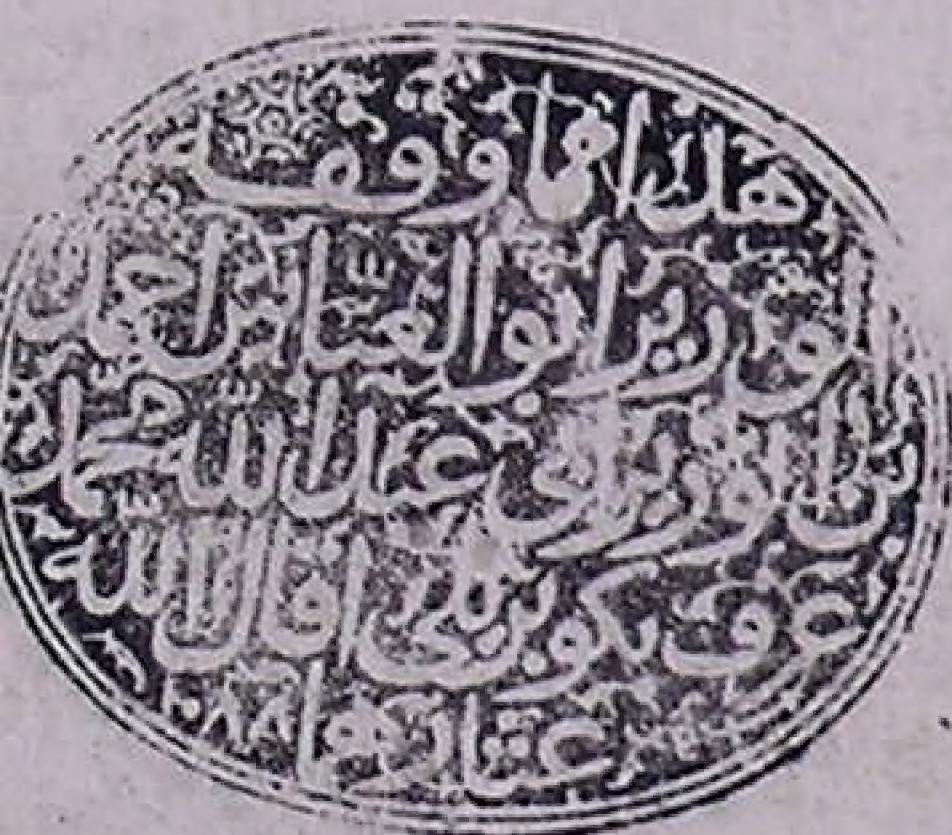 هذا مما وقفه
الوزير ابو العباس احمد
بن الوزير ابى عبد الله محمد
عرف بكوبريلى اقال الله
عثارهما ١٠٨٨